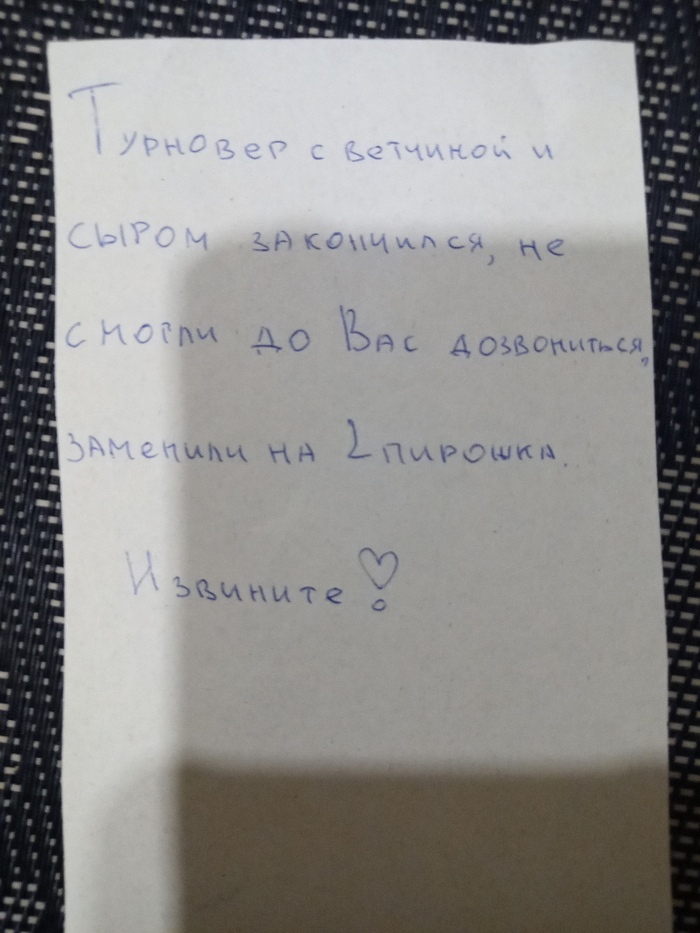 Турновер с ветчиной и
сыром закончился, не
смогли до Вас дозвониться,
заменили на 2 пирошка.
Извините!